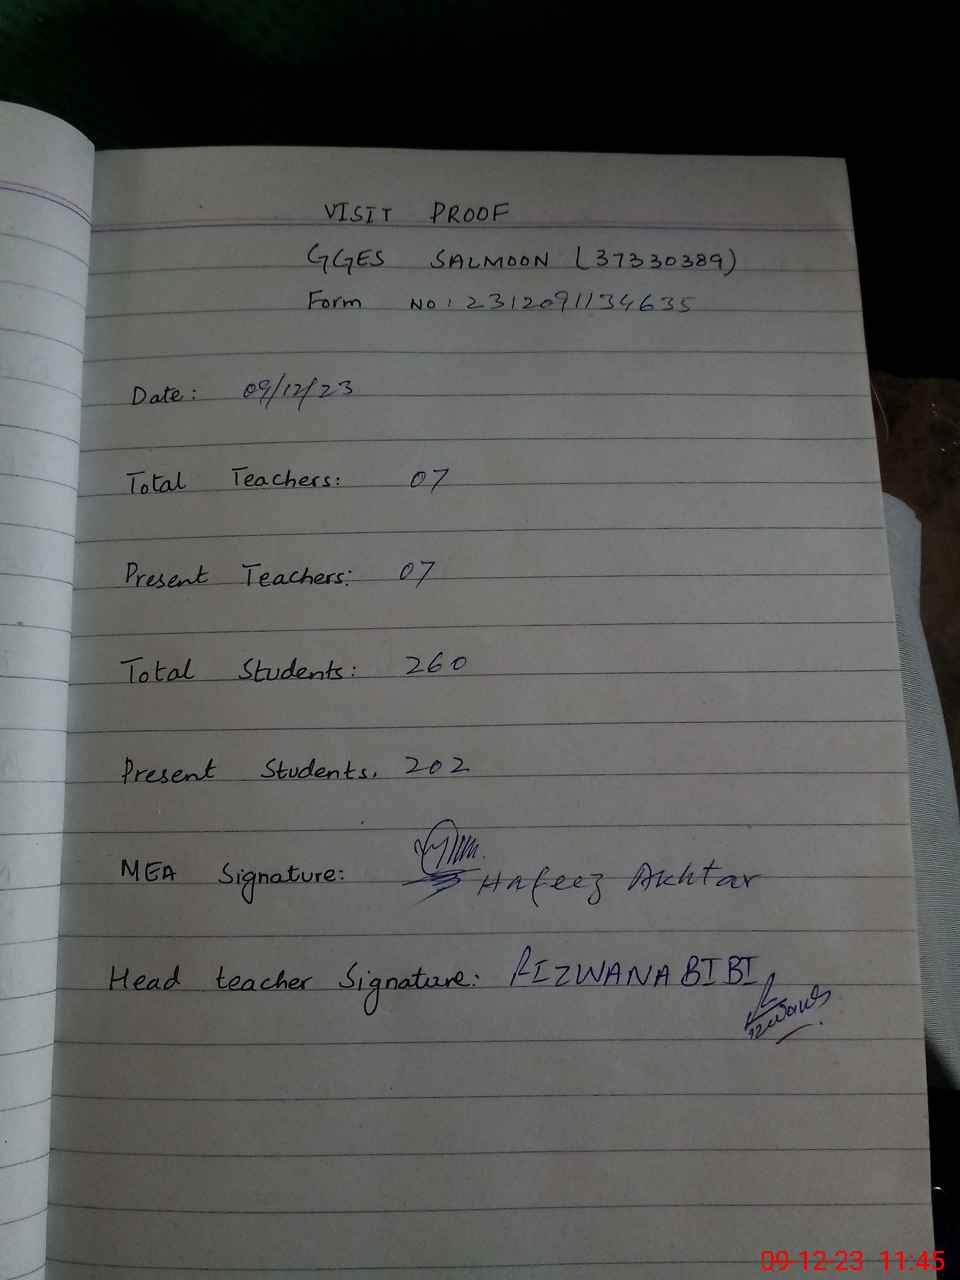 VISIT PROOF
GGES SALMOON (37330389)
Form NO: 2312091134635
Date: 09/12/23
Total Teachers: 07
Present Teachers: 07
Total Students: 260
Present Students. 202
MEA Signature: Hafeez Akhtar
Head teacher Signature: RIZWANA BIBI
09-12-23 11:45